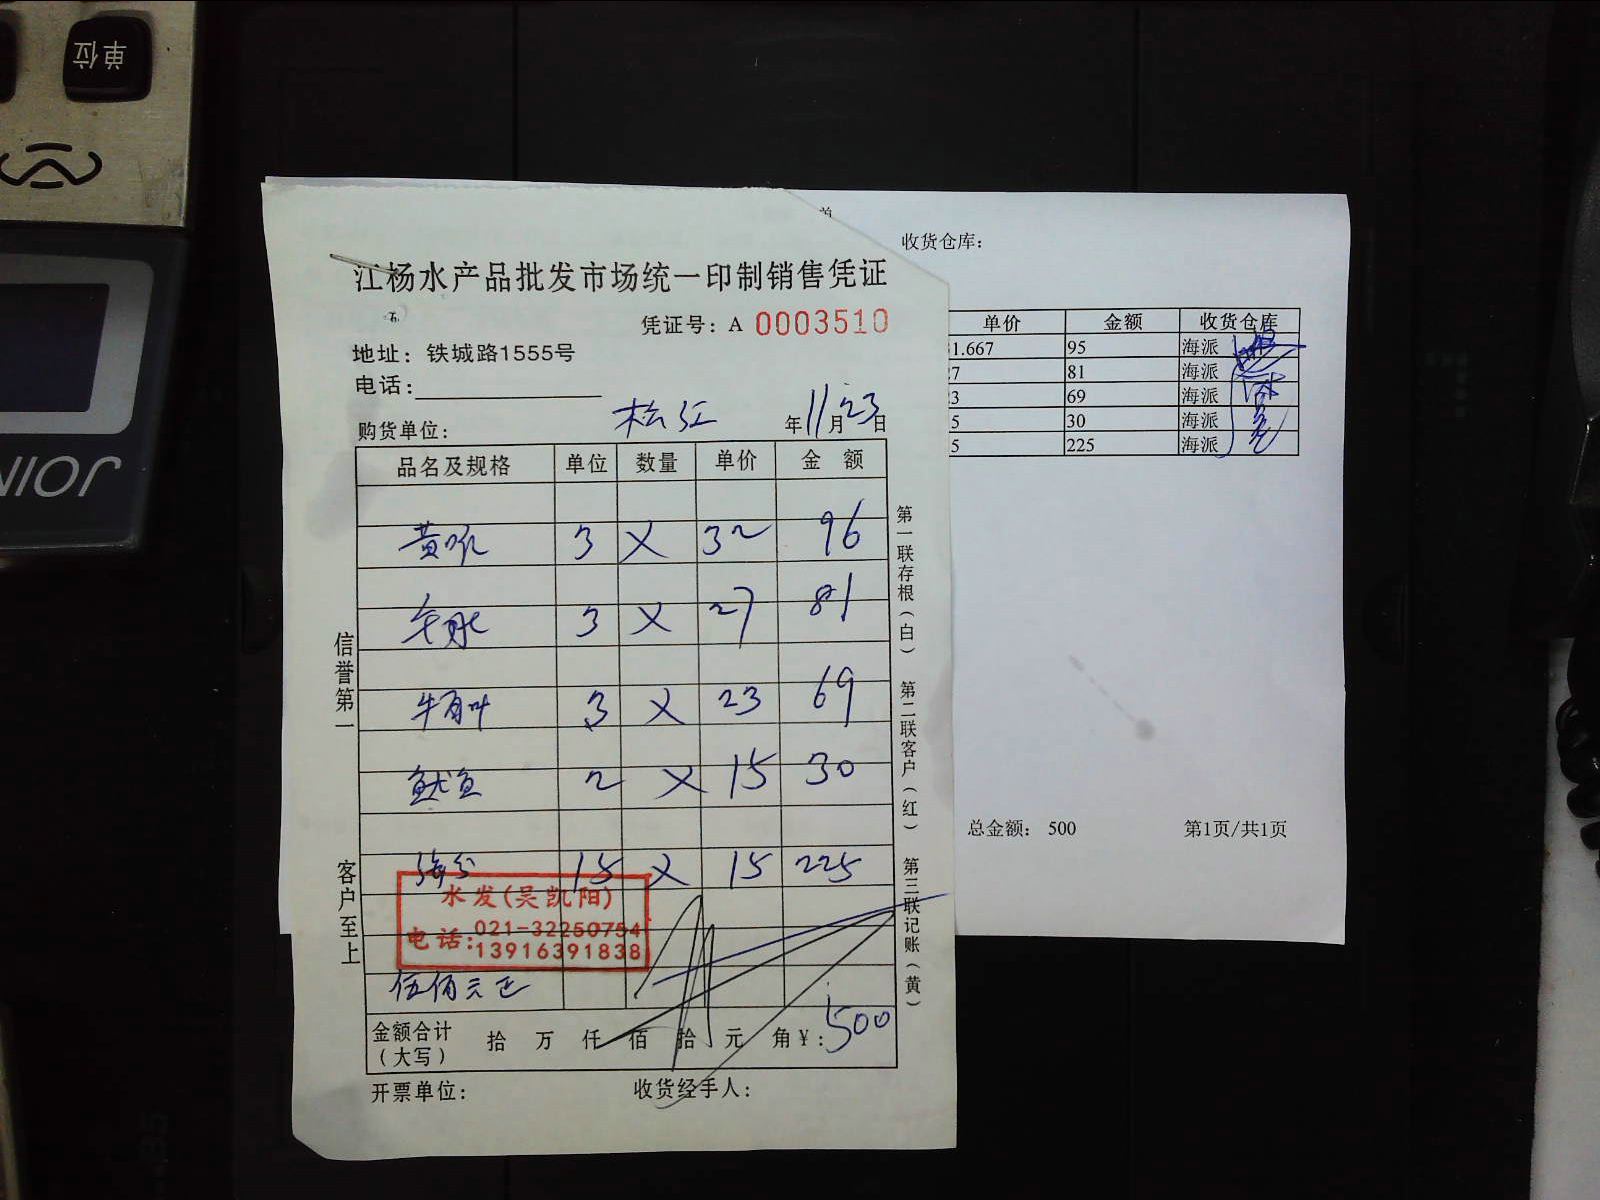 单位
江杨水产品批发市场统一印制销售凭证
凭证号：A 0003510
地址：铁城路1555号
电话：
购货单位： 松江 年11月23日
品名及规格 单位 数量 单价 金额
3 × 32 96
3 × 27 81
牛百叶 3 × 23 69
鱿鱼 2 × 15 30
15 × 15 225
水发(吴凯阳)
电话：021-32250754
13916391838
伍佰元正
金额合计（大写） 拾 万 仟 佰 拾 元 角 ¥：500
开票单位： 收货经手人：
信誉第一
客户至上
第一联存根（白）
第二联客户（红）
第三联记账（黄）
收货仓库：
单价 金额 收货仓库
1.667 95 海派
7 81 海派
3 69 海派
5 30 海派
5 225 海派
总金额： 500 第1页/共1页